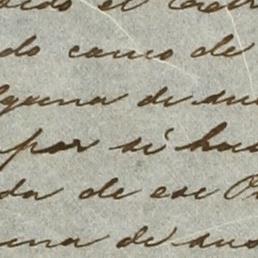 do el
do como de
lguna de su
por si hac
da de ese O
una de sus